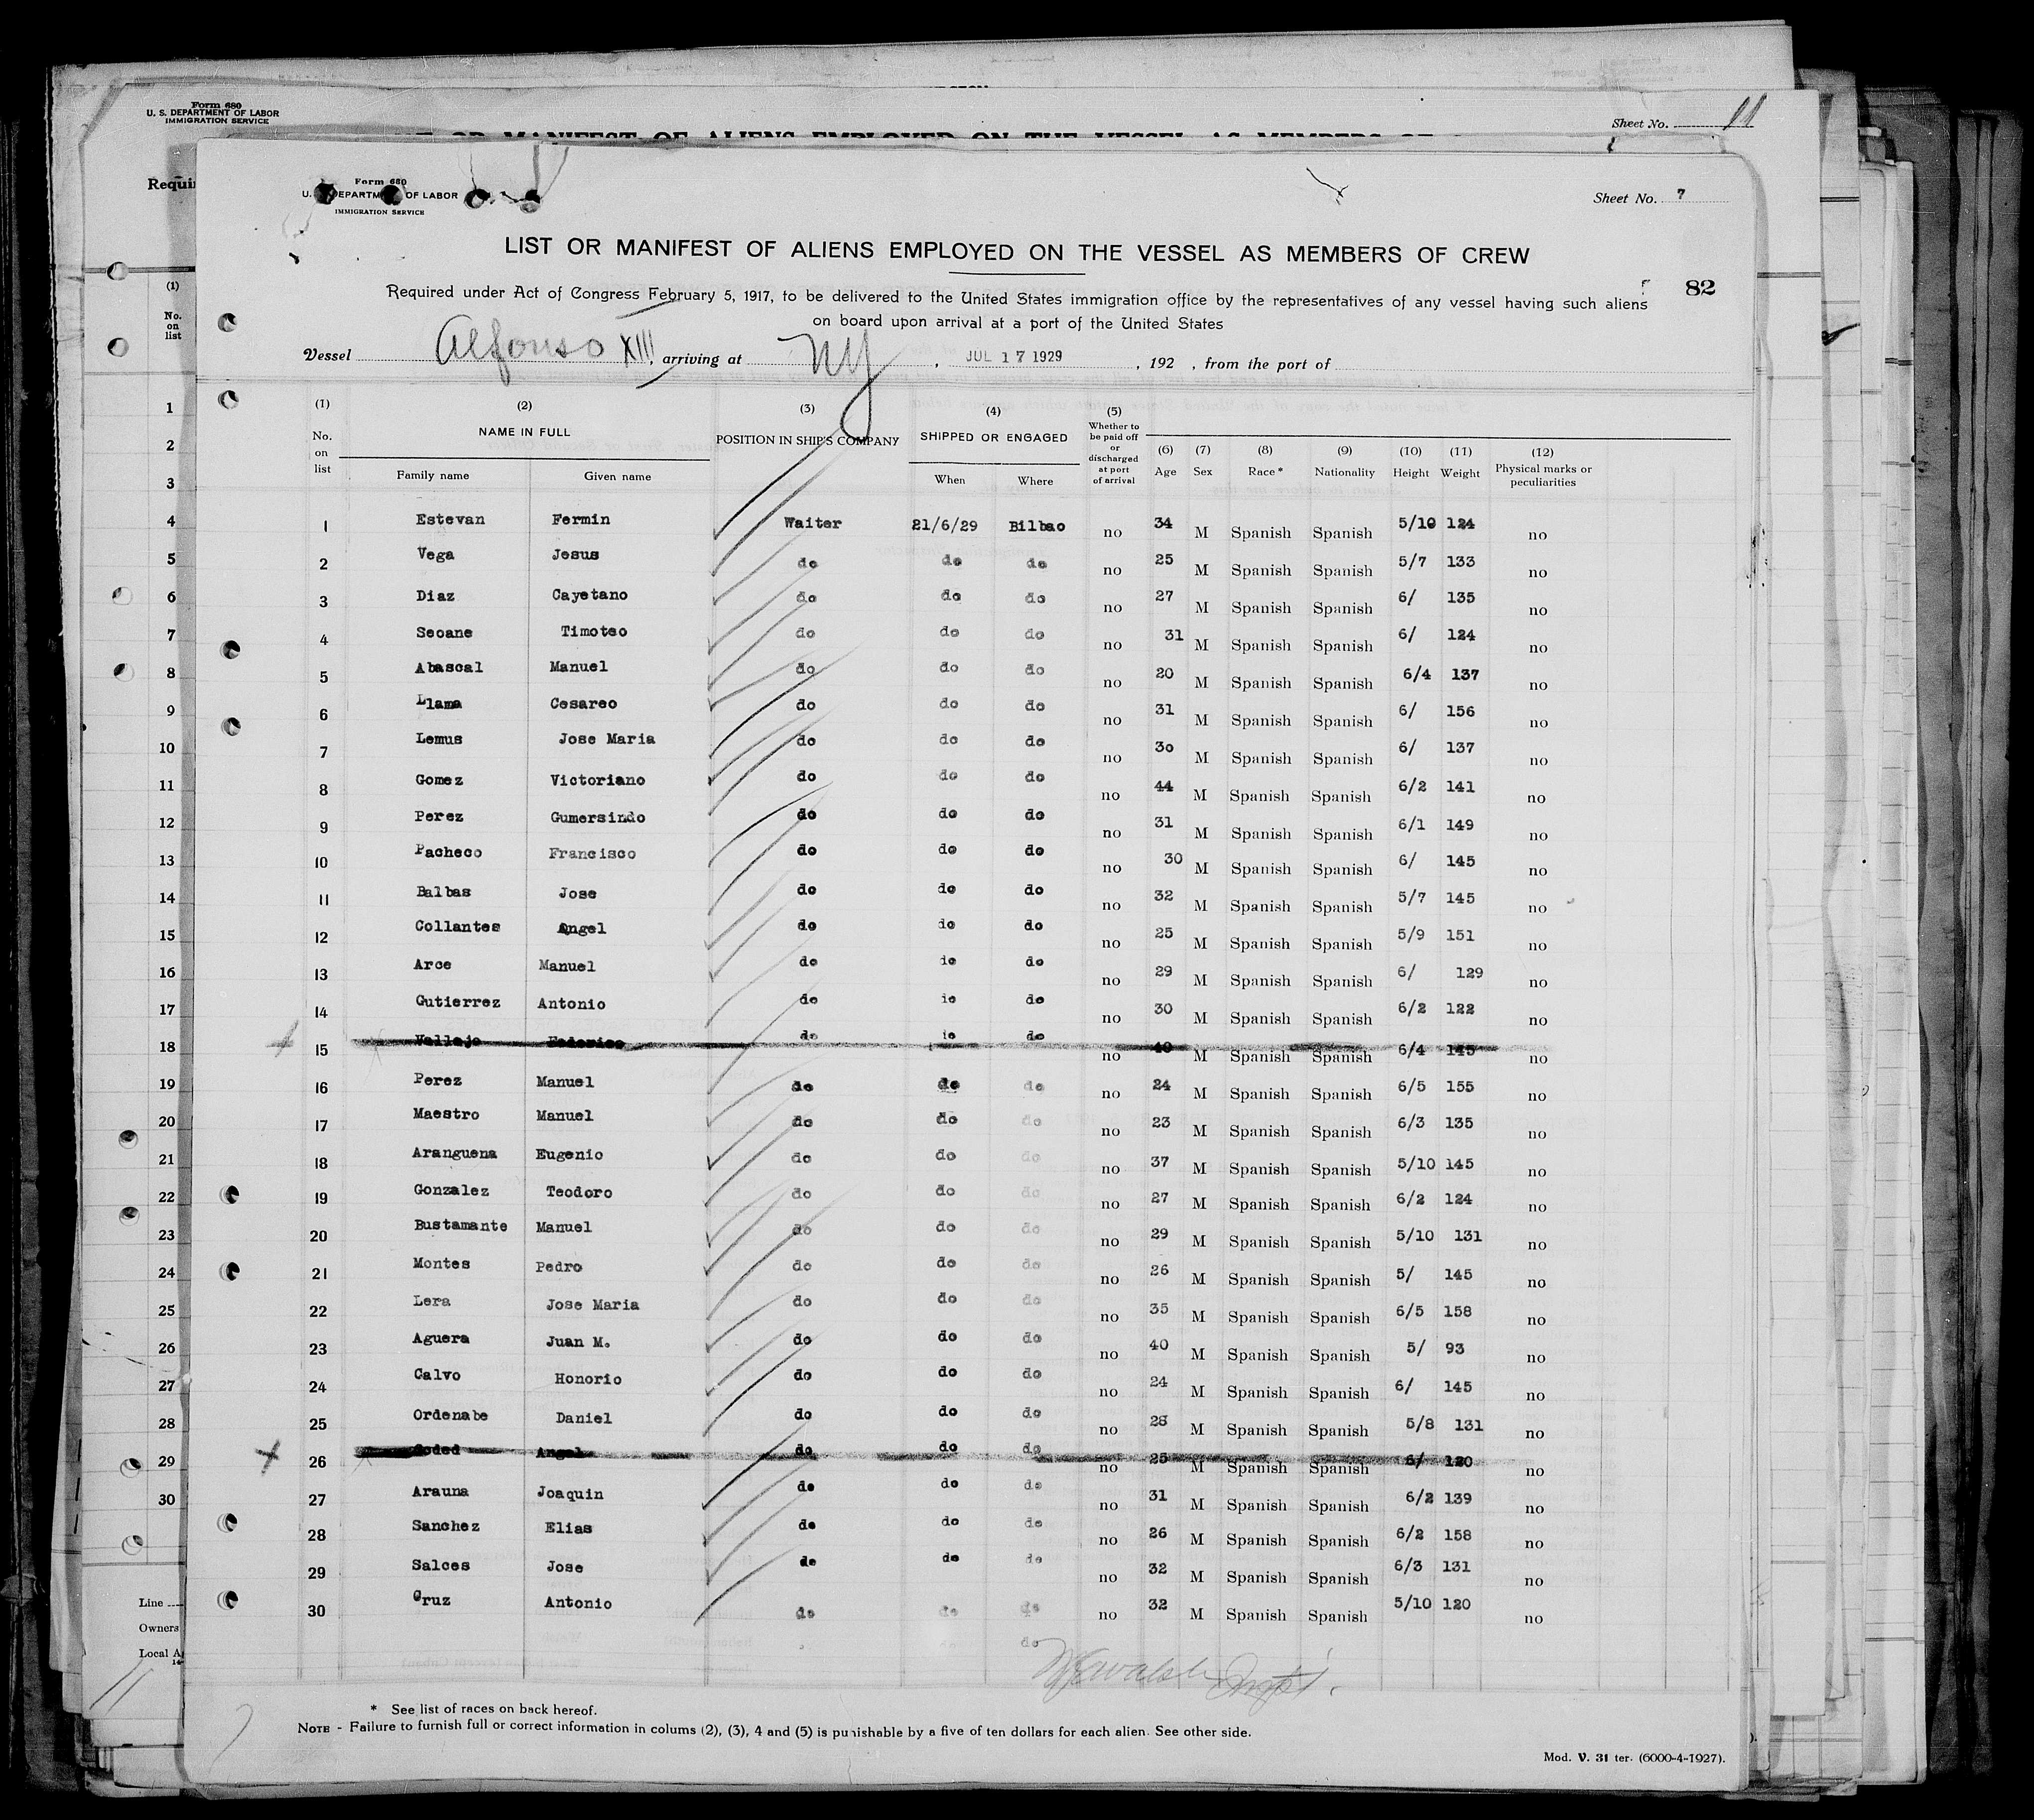 Form 680
U. S. DEPARTMENT OF LABOR
IMMIGRATION SERVICE
Sheet No. 11
Requir
(1)
No.
on
list
1
2
3
4
5
6
7
8
9
10
11
12
13
14
15
16
17
18
19
20
21
22
23
24
25
26
27
28
29
30
Line
Owners
Local A
11
Form 680
U. S. DEPARTMENT OF LABOR
IMMIGRATION SERVICE
Sheet No. 7
LIST OR MANIFEST OF ALIENS EMPLOYED ON THE VESSEL AS MEMBERS OF CREW
82
Required under Act of Congress February 5, 1917, to be delivered to the United States immigration office by the representatives of any vessel having such aliens
on board upon arrival at a port of the United States
Vessel Alfonso XIII, arriving at NY, JUL 17 1929, 192 , from the port of
(1) No. on list (2) NAME IN FULL Family name Given name (3) POSITION IN SHIP'S COMPANY (4) SHIPPED OR ENGAGED When Where (5) Whether to be paid off or discharged at port of arrival (6) Age (7) Sex (8) Race* (9) Nationality (10) Height (11) Weight (12) Physical marks or peculiarities
1 Estevan Fermin Waiter 21/6/29 Bilbao no 34 M Spanish Spanish 5/10 124 no
2 Vega Jesus do do do no 25 M Spanish Spanish 5/7 133 no
3 Diaz Cayetano do do do no 27 M Spanish Spanish 6/ 135 no
4 Seoane Timoteo do do do no 31 M Spanish Spanish 6/ 124 no
5 Abascal Manuel do do do no 20 M Spanish Spanish 6/4 137 no
6 Llama Cesareo do do do no 31 M Spanish Spanish 6/ 156 no
7 Lemus Jose Maria do do do no 30 M Spanish Spanish 6/ 137 no
8 Gomez Victoriano do do do no 44 M Spanish Spanish 6/2 141 no
9 Perez Gumersindo do do do no 31 M Spanish Spanish 6/1 149 no
10 Pacheco Francisco do do do no 30 M Spanish Spanish 6/ 145 no
11 Balbas Jose do do do no 32 M Spanish Spanish 5/7 145 no
12 Collantes Angel do do do no 25 M Spanish Spanish 5/9 151 no
13 Arce Manuel do do do no 29 M Spanish Spanish 6/ 129 no
14 Gutierrez Antonio do do do no 30 M Spanish Spanish 6/2 122 no
15 Vallejo Federico do do do no 40 M Spanish Spanish 6/4 145 no
16 Perez Manuel do do do no 24 M Spanish Spanish 6/5 155 no
17 Maestro Manuel do do do no 23 M Spanish Spanish 6/3 135 no
18 Aranguena Eugenio do do do no 37 M Spanish Spanish 5/10 145 no
19 Gonzalez Teodoro do do do no 27 M Spanish Spanish 6/2 124 no
20 Bustamante Manuel do do do no 29 M Spanish Spanish 5/10 131 no
21 Montes Pedro do do do no 26 M Spanish Spanish 5/ 145 no
22 Lera Jose Maria do do do no 35 M Spanish Spanish 6/5 158 no
23 Aguera Juan M. do do do no 40 M Spanish Spanish 5/ 93 no
24 Calvo Honorio do do do no 24 M Spanish Spanish 6/ 145 no
25 Ordenabe Daniel do do do no 28 M Spanish Spanish 5/8 131 no
26 Angel do do do no 25 M Spanish Spanish 6/ 120 no
27 Arauna Joaquin do do do no 31 M Spanish Spanish 6/2 139 no
28 Sanchez Elias do do do no 26 M Spanish Spanish 6/2 158 no
29 Salces Jose do do do no 32 M Spanish Spanish 6/3 131 no
30 Cruz Antonio do do do no 32 M Spanish Spanish 5/10 120 no
do
Walsh Inspt.
* See list of races on back hereof.
NOTE - Failure to furnish full or correct information in colums (2), (3), 4 and (5) is punishable by a five of ten dollars for each alien. See other side.
Mod. V. 31 ter. (6000-4-1927).